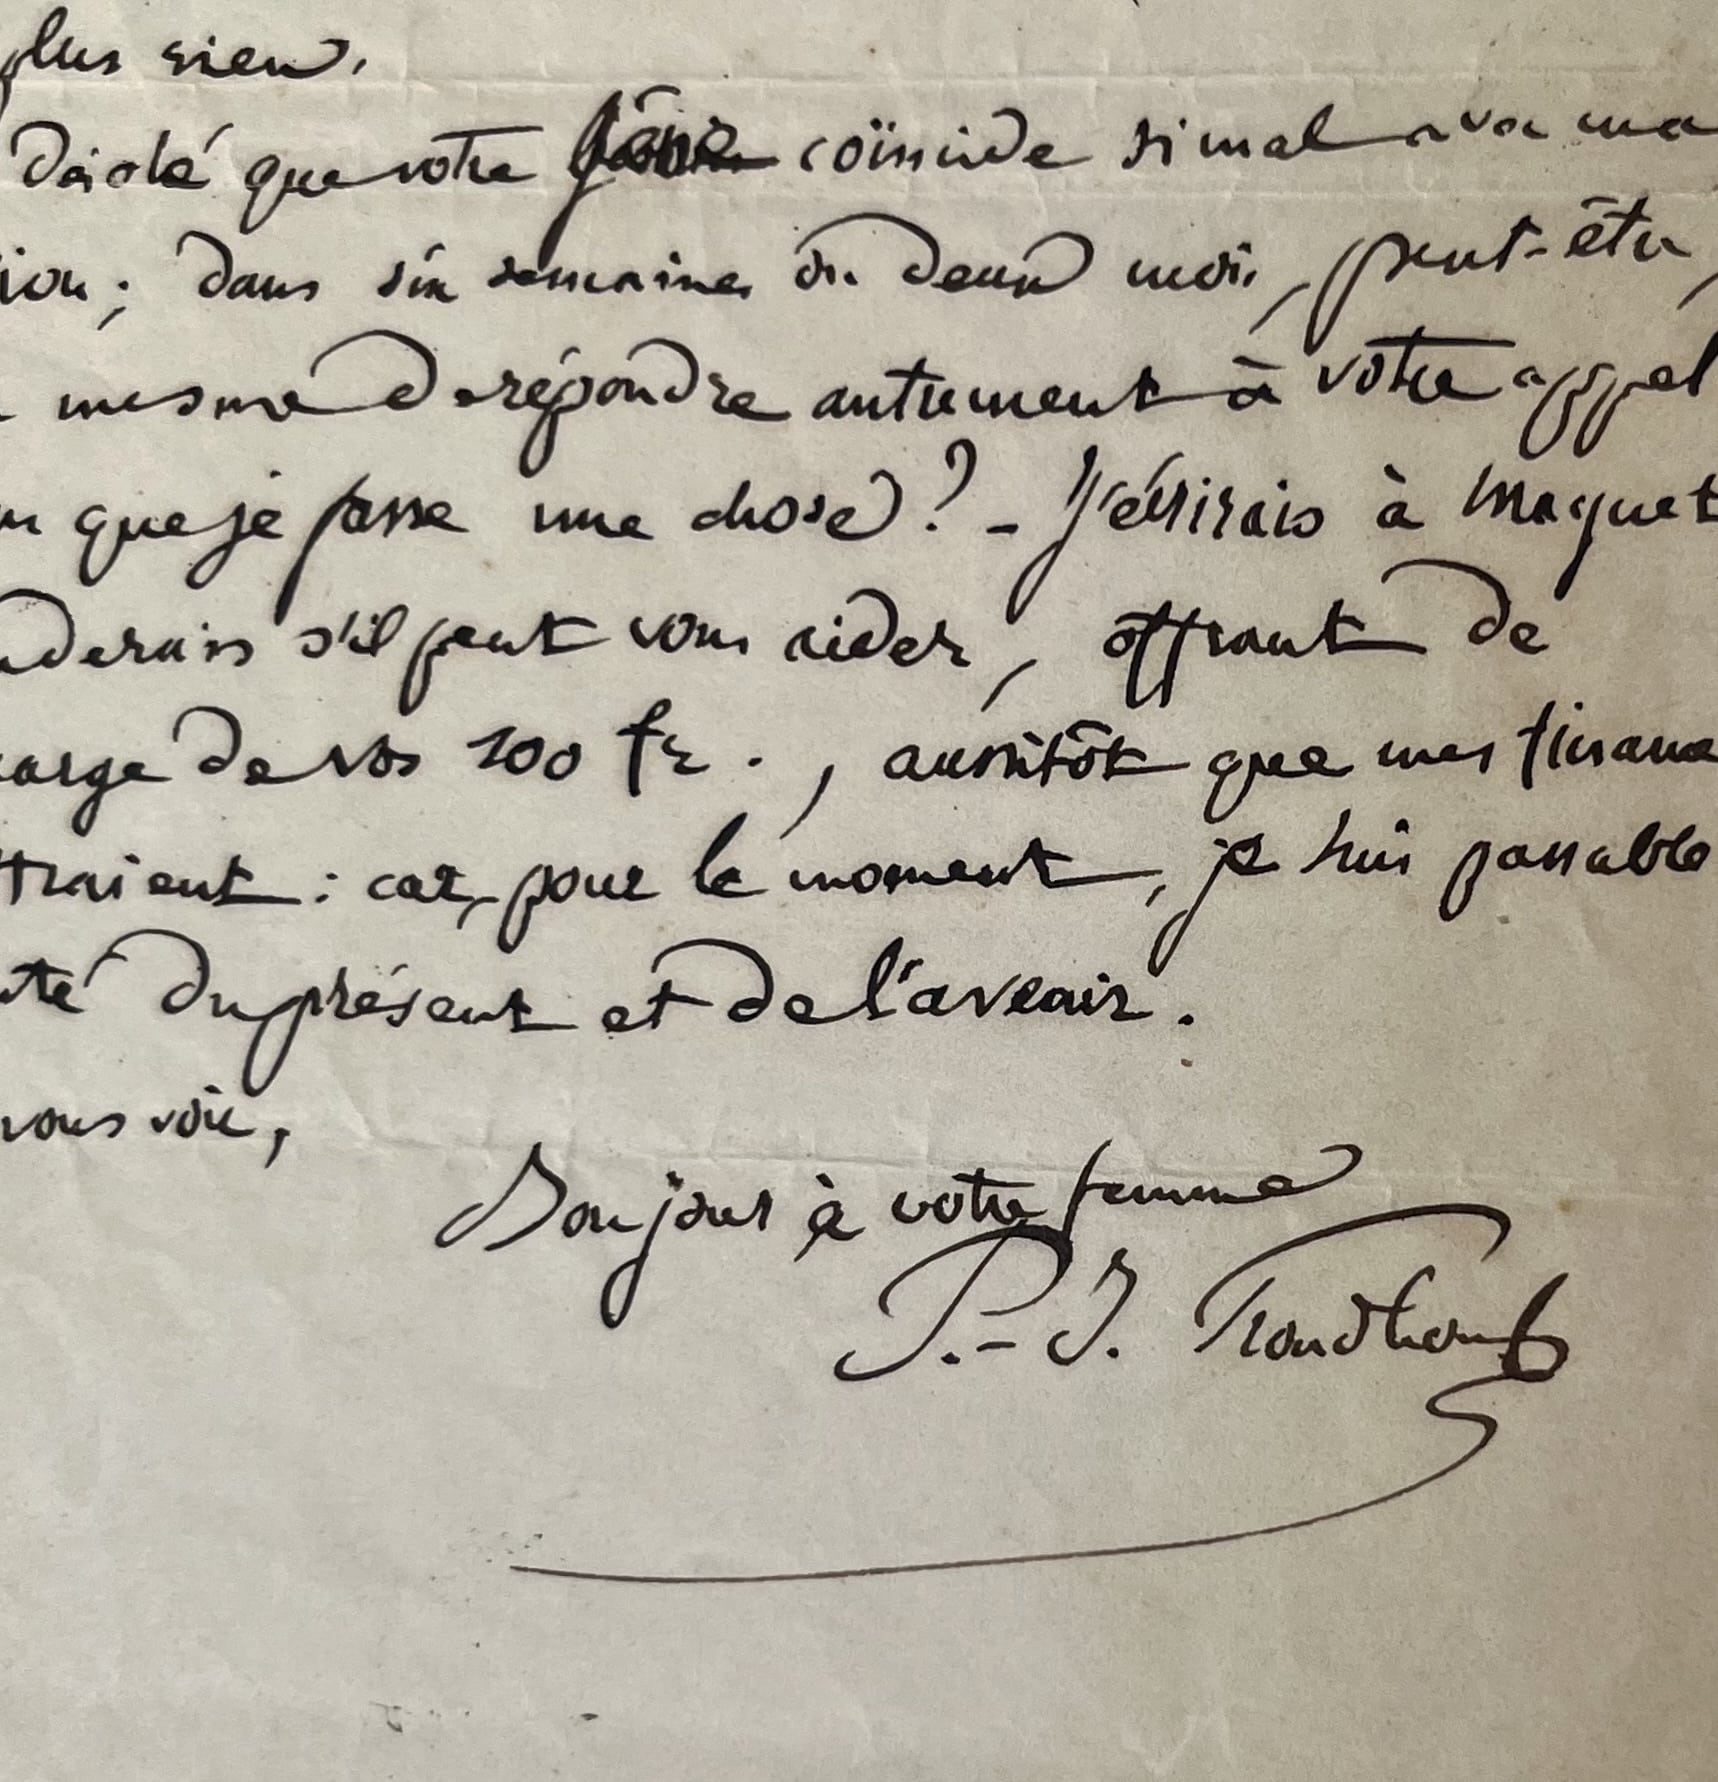 plus rien.
désolé que votre gêne coïncide si mal avec ma
ion ; dans six semaines ou deux mois, peut-être,
mesme de répondre autrement à votre appel
que je fasse une chose ? - J'écrirais à Maquet
derais s'il peut vous aider, offrant de
arge de vos 100 fr., aussitôt que mes finance
ttraient : car, pour le moment, je suis passable
té du présent et de l'avenir.
vous voir,
Bonjour à votre femme
P.-J. Proudhon